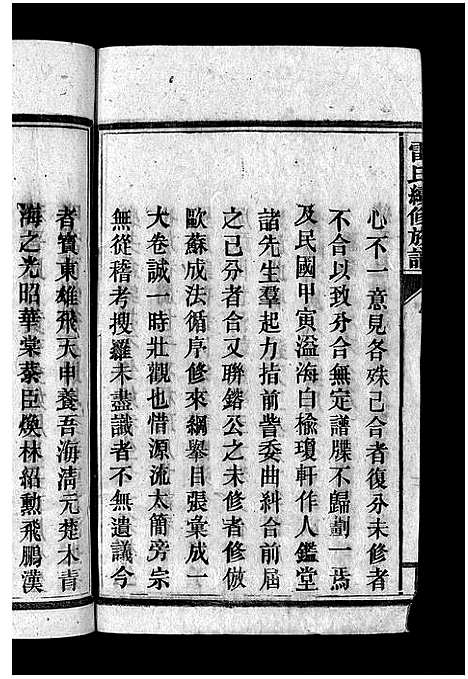 雷氏續修族譜
心不一意見各殊已合者復分未修者
不合以致分合無定譜牒不歸劃一焉
及民國甲寅溢海白榆瓊軒作人鑑堂
諸先生羣起力指前訾委曲糾合前屆
之已分者合又聯鍇公之未修者修倣
歐蘇成法循序修來綱舉目張彙成一
大卷誠一時壯觀也惜源流太簡旁宗
無從稽考搜羅未盡識者不無遺議今
者賓東雄飛天申養吾海清元楚木青
海之光昭華棠蓁臣煥林紹勲飛鵬漢